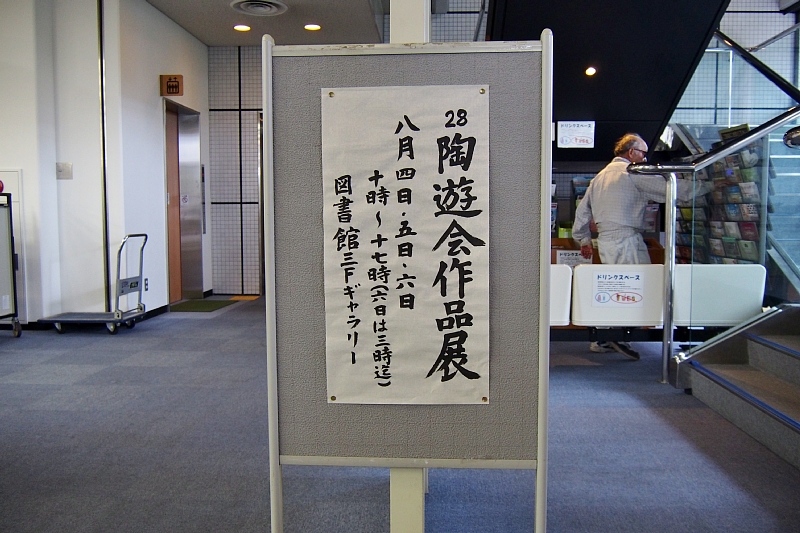 28
陶遊会作品展
八月四日・五日・六日
十時～十七時(六日は三時迄)
図書館三Fギャラリー
ドリンクスペース
ドリンクスペース